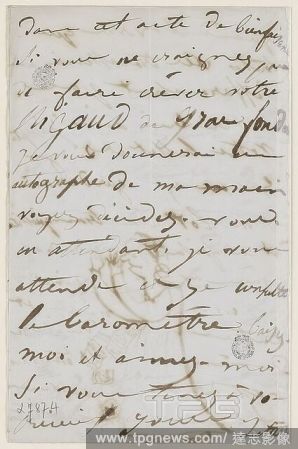 dans cet acte de bienfai
si vous ne craignez pas
de faire crêver votre
Rigaud de
je vous donnerai un
autographe de ma main
voyez décidez-vous
en attendant je vous
attends et je consulte
le baromètre
moi et aimez-moi
Si vous tenez à
27874
TPG
www.tpgnews.com/達志影像